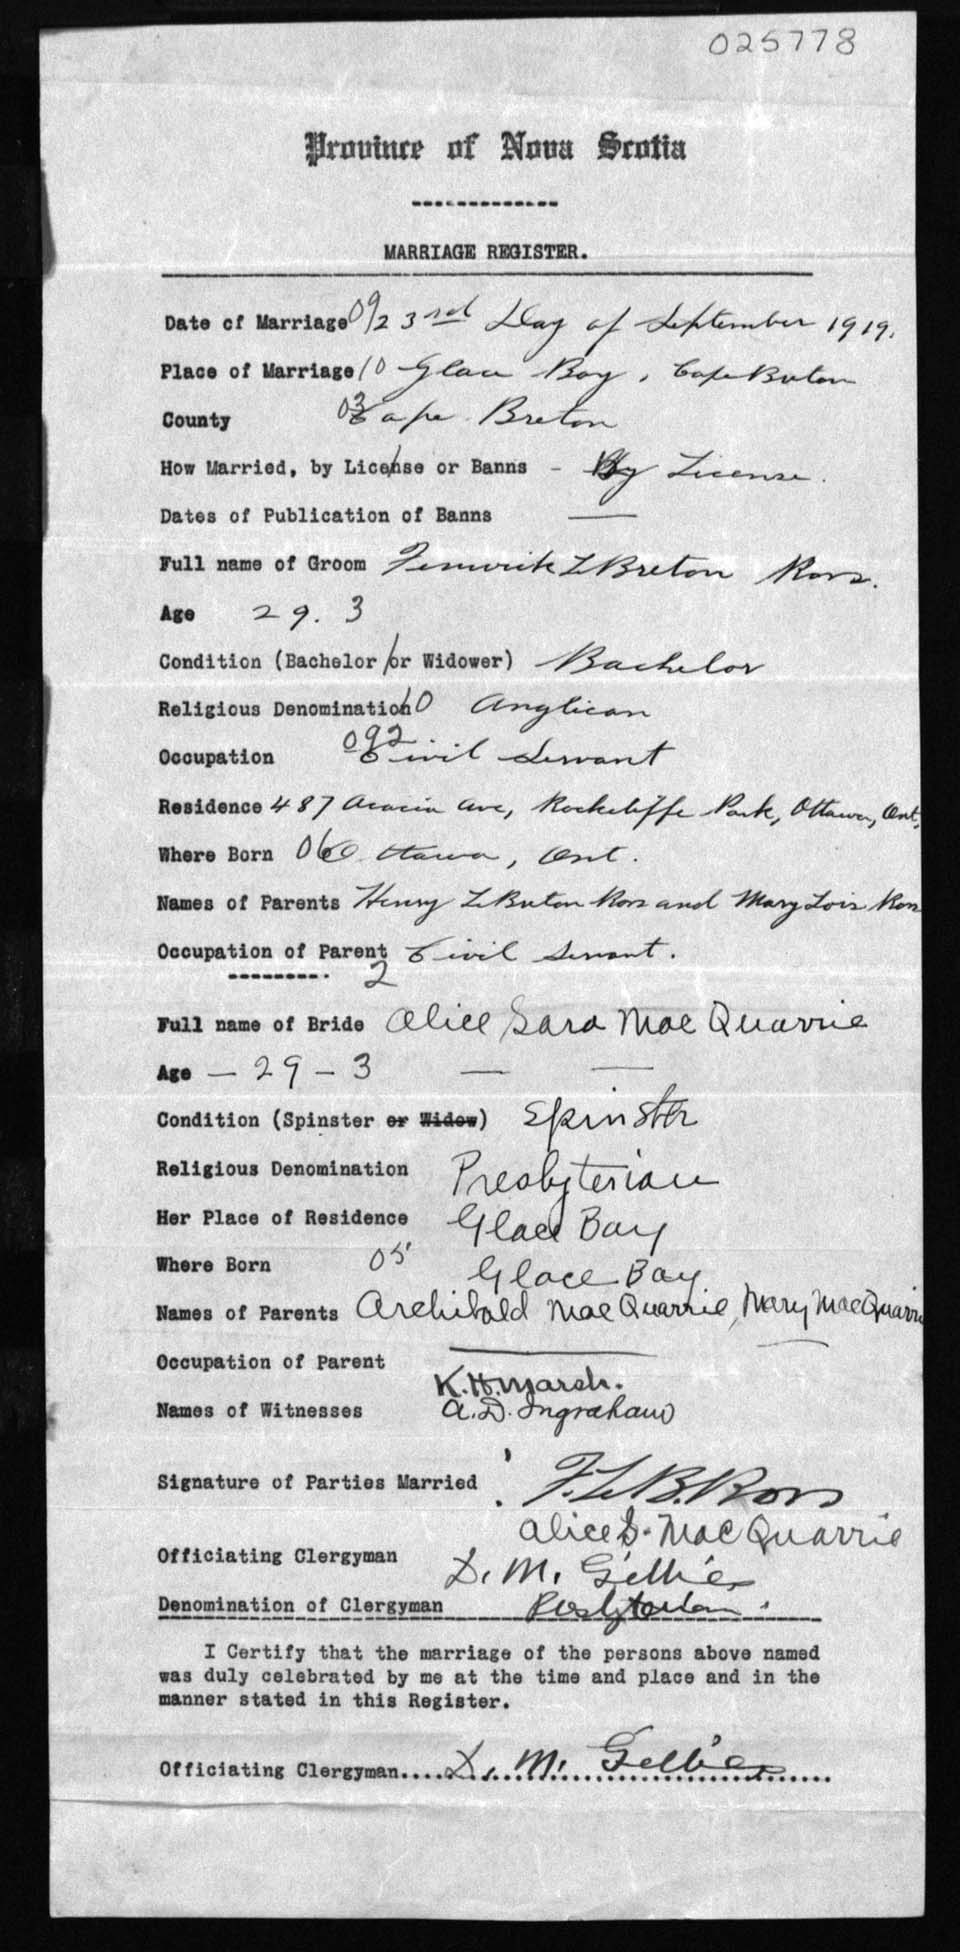 025778
Province of Nova Scotia
MARRIAGE REGISTER.
Date of Marriage 09/23rd Day of September 1919.
Place of Marriage 10 Glace Bay, Cape Breton
County 03 Cape Breton
How Married, by License or Banns - By License.
Dates of Publication of Banns —
Full name of Groom Fenwick LeBreton Ross.
Age 29. 3
Condition (Bachelor or Widower) Bachelor
Religious Denomination 10 Anglican
Occupation 092 Civil Servant
Residence 487 Acacia Ave, Rockcliffe Park, Ottawa, Ont,
Where Born 06 Ottawa, Ont.
Names of Parents Henry LeBreton Ross and Mary Lois Ross
Occupation of Parent Civil Servant.
2
Full name of Bride Alice Sara MacQuarrie
Age — 29 — 3 — —
Condition (Spinster or Widow) Spinster
Religious Denomination Presbyterian
Her Place of Residence Glace Bay
Where Born 05 Glace Bay
Names of Parents Archibald MacQuarrie, Mary MacQuarrie
Occupation of Parent —
K. H. Marsh.
Names of Witnesses A. D. Ingraham
Signature of Parties Married F. LeB. Ross
Alice S. MacQuarrie
Officiating Clergyman D. M. Gillies
Denomination of Clergyman Presbyterian.
I Certify that the marriage of the persons above named
was duly celebrated by me at the time and place and in the
manner stated in this Register.
Officiating Clergyman.... D. M. Gillies